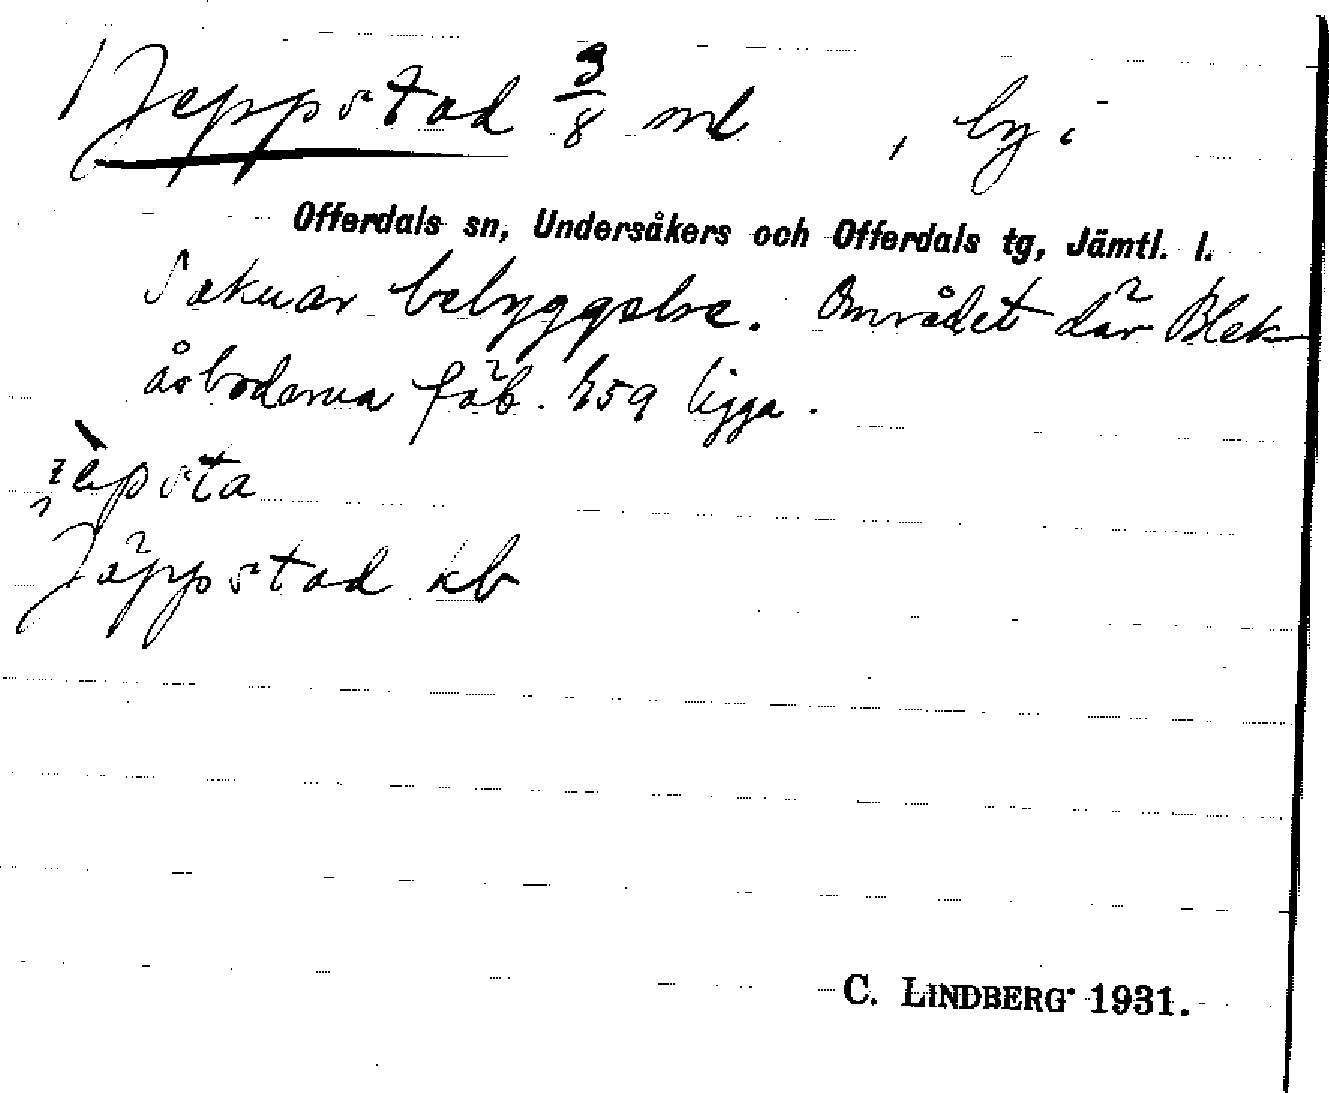 1) Jeppstad 3/8 ml , by i
Offerdals sn, Undersåkers och Offerdals tg, Jämtl. l.
Saknar bebyggelse. Området där Blek
åsbodarna fäb. 259 ligga.
jèpsta
Jäppstad kb
C. LINDBERG 1931.